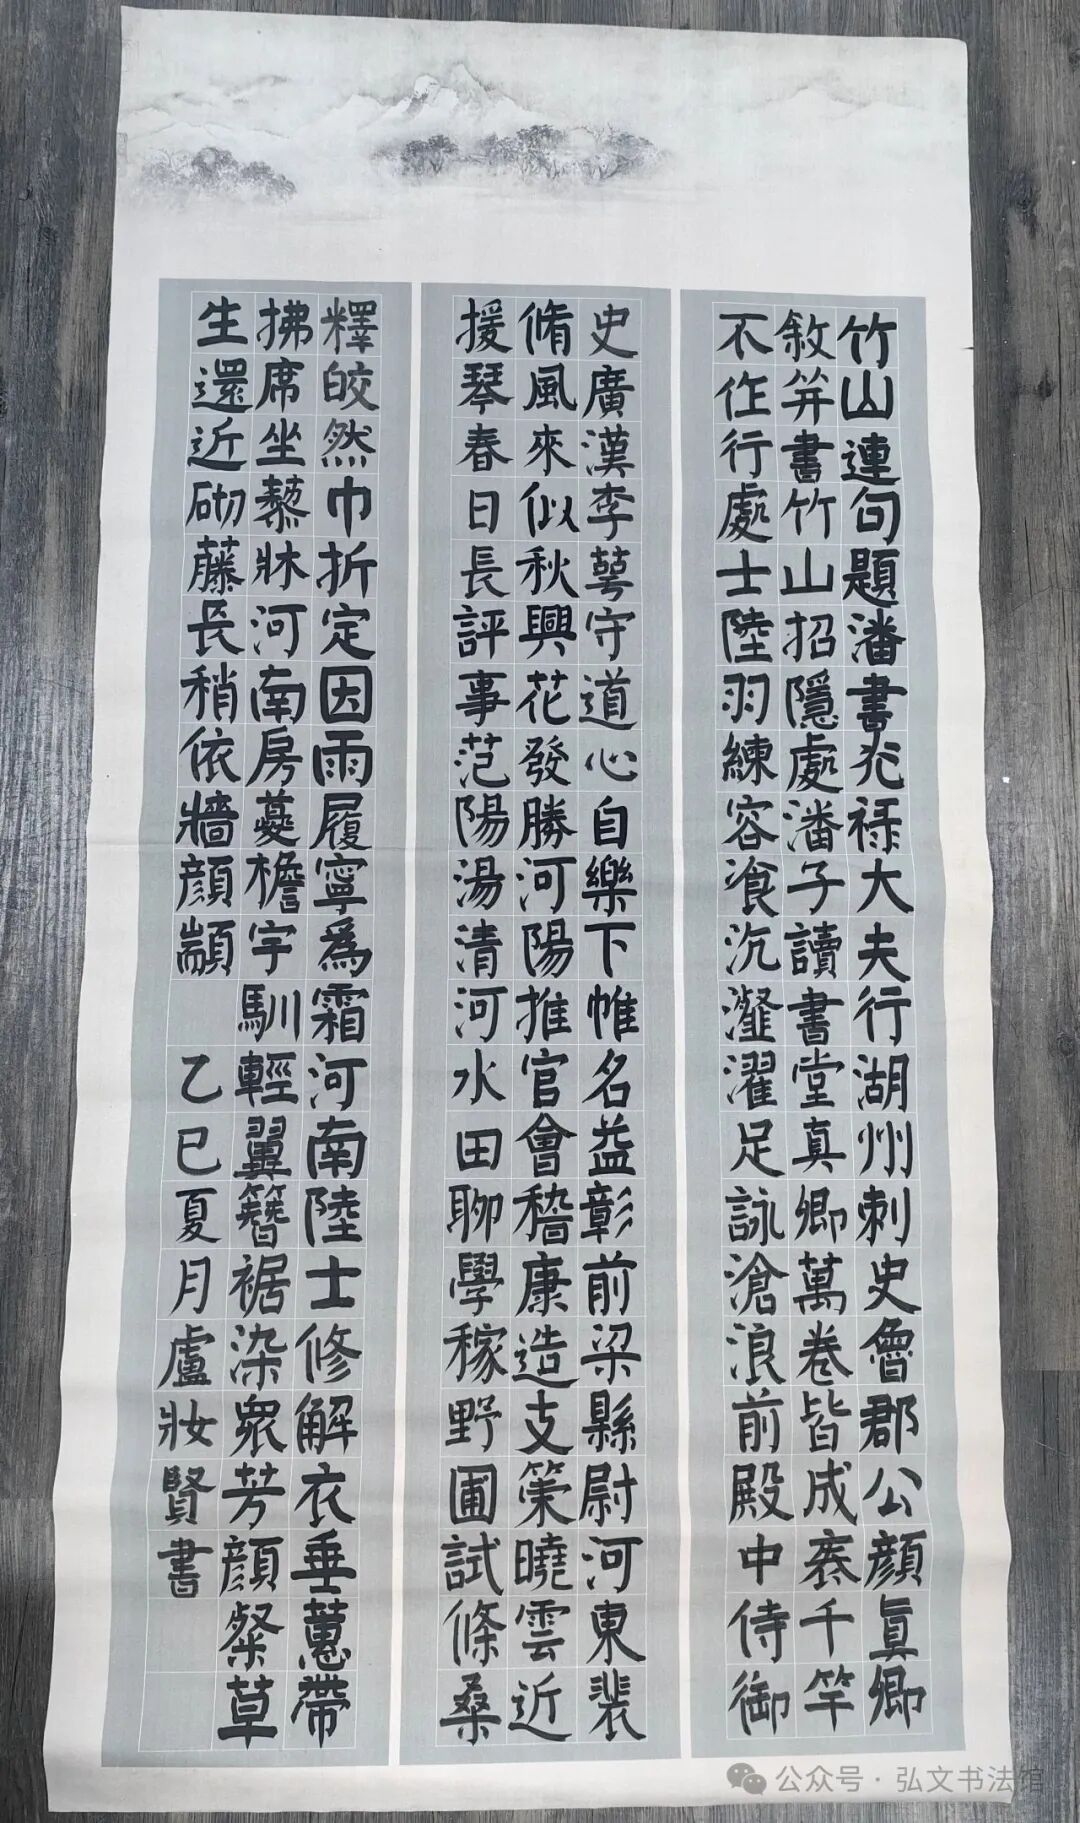 竹山連句題潘書光祿大夫行湖州刺史魯郡公顏眞卿
敘并書竹山招隱處潘子讀書堂真卿萬卷皆成袠千竿
不作行處士陸羽練容飡沆瀣濯足詠滄浪前殿中侍御
史廣漢李萼守道心自樂下帷名益彰前梁縣尉河東裴
脩風來似秋興花發勝河陽推官會稽康造支策曉雲近
援琴春日長評事范陽湯清河水田聊學稼野圃試條桑
釋皎然巾折定因雨履寧爲霜河南陸士修解衣垂蕙帶
拂席坐藜牀河南房夔檐宇馴輕翼簪裾染眾芳顏粲草
生還近砌藤長稍依牆顏顓 乙巳夏月盧妝賢書
公众号·弘文书法馆